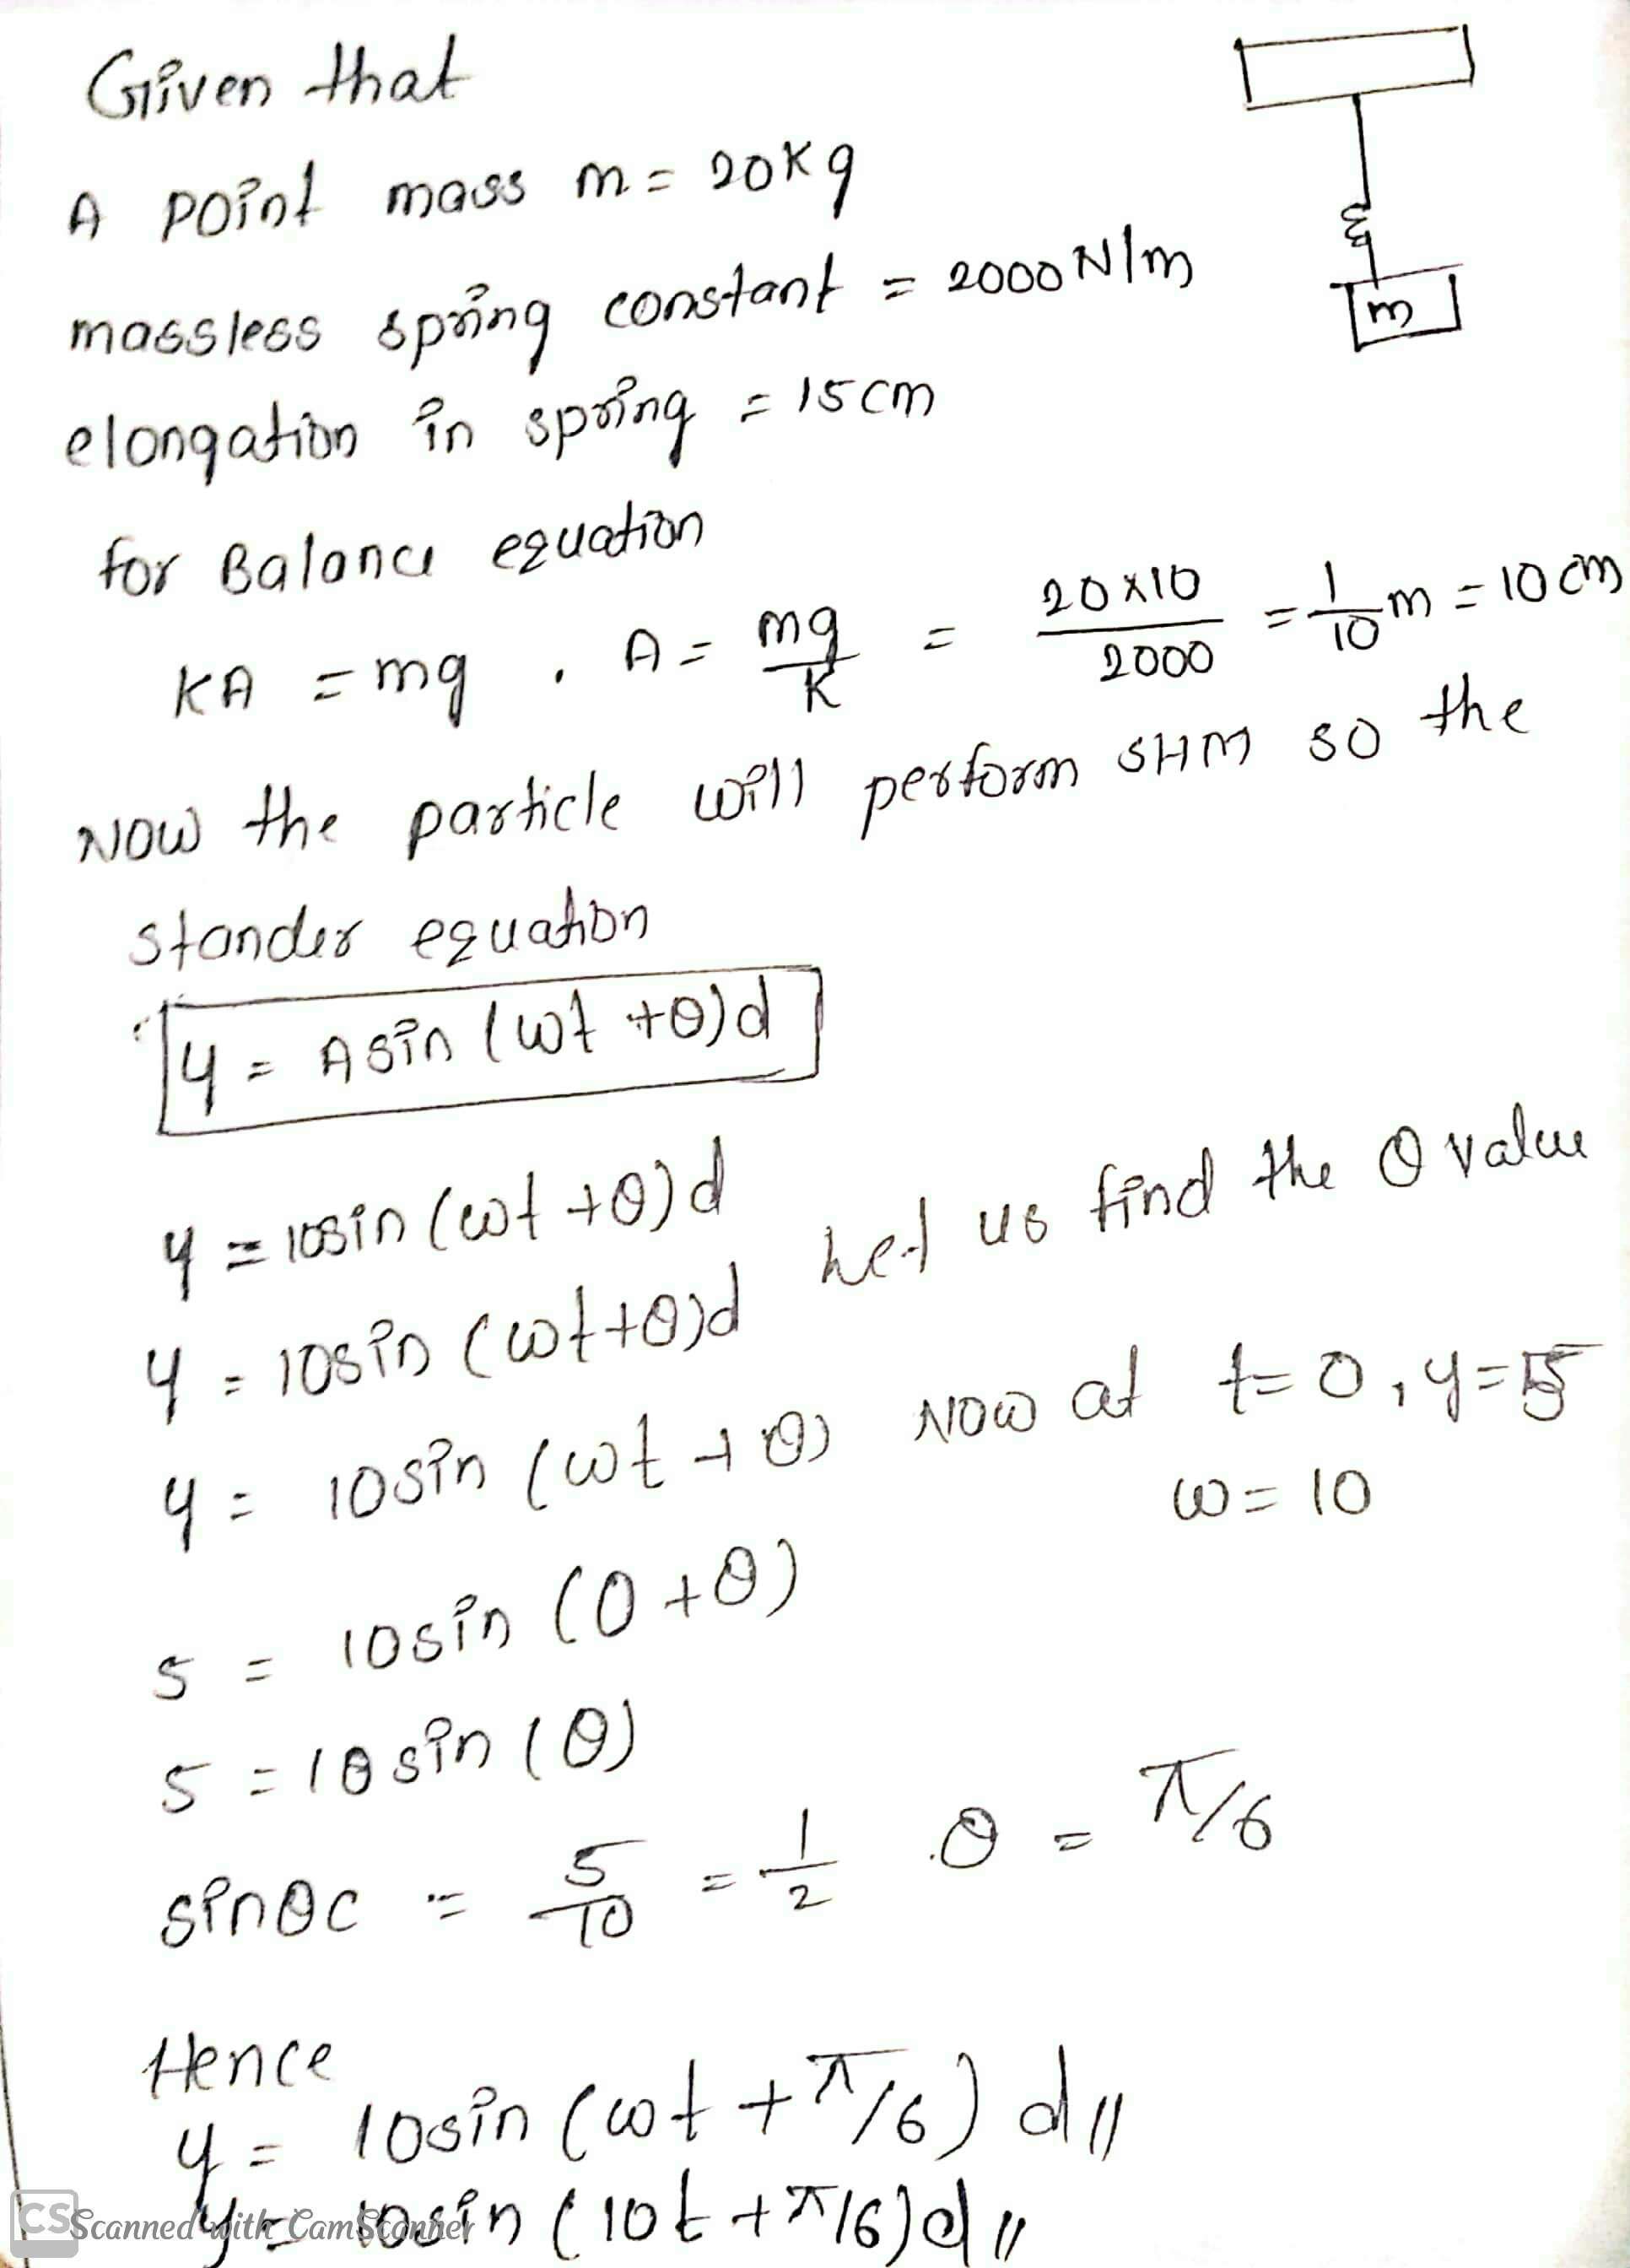 Given that
A point mass m = 20kg
massless spring constant = 2000 N/m
m
elongation in spring = 15cm
for Balance equation
KA = mg . A = mg/K = 20×10/2000 = 1/10 m = 10 cm
NOW the particle will perform SHM so the
stander equation
y = A sin (ωt +θ)d
y = 10sin (ωt +θ)d
Let us find the θ value
y = 10sin (ωt+θ)d
y = 10sin (ωt +θ) NOW at t=0, y=5
ω = 10
5 = 10sin (0+θ)
5 = 10 sin (θ)
sinθc = 5/10 = 1/2 θ = π/6
Hence
y = 10sin (ωt + π/6) d//
y = 10sin (10t + π/6)d //
CS Scanned with CamScanner